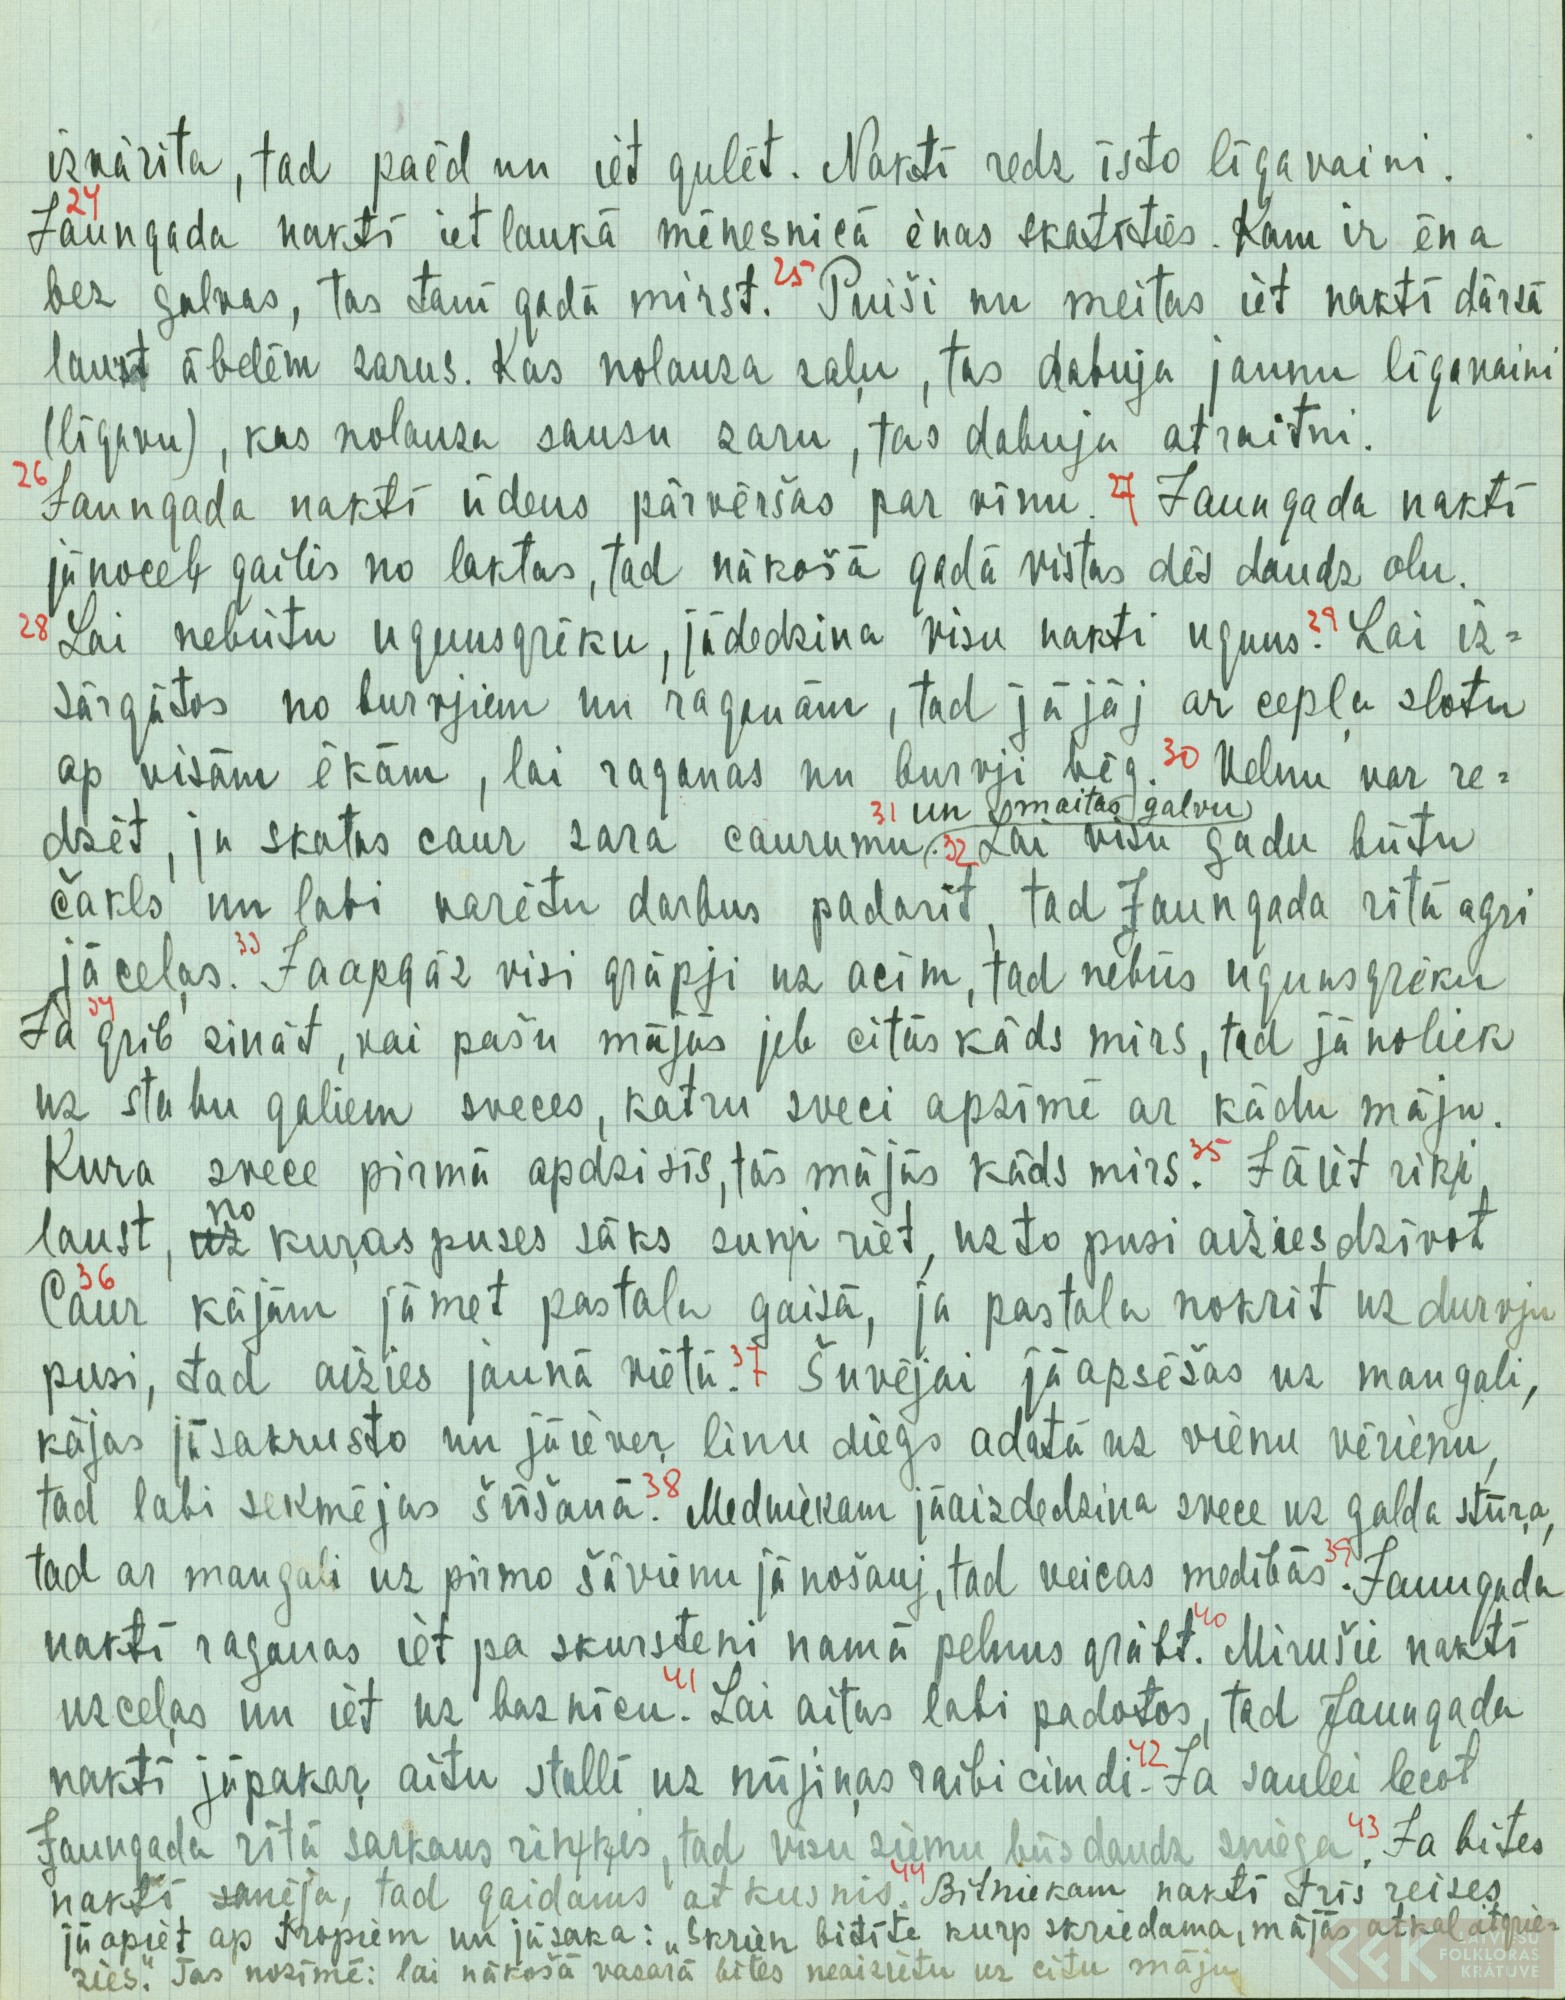 izvārīta, tad paēd un iet gulēt. Naktī redz īsto līgavaini.
24
Jaungada naktī iet laukā mēnesnicā ēnas skatīties. Kam ir ēna
bez galvas, tas tanī gadā mirst. 25 Puiši un meitas iet naktī dārzā
lauzt ābelēm zarus. Kas nolauza zaļu, tas dabuja jaunu līgavaini
(līgavu), kas nolauza sausu zaru, tas dabuja atraitni.
26 Jaungada naktī ūdens pārvēršas par vīnu. 27 Jaungada naktī
jānoceļ gailis no laktas, tad nākošā gadā vistas dēs daudz olu.
28 Lai nebūtu ugunsgrēku, jādedzina visu nakti uguns. 29 Lai iz=
sārgātos no burvjiem un raganām, tad jājāj ar cepļa slotu
ap visām ēkām, lai raganas un burvji bēg. 30 Velnu var re=
31 un maitas galvu
dzēt, ja skatas caur zara caurumu. 32 Lai visu gadu būtu
čakls un labi varētu darbus padarīt, tad Jaungada rītā agri
jāceļas. 33 Jaapgāz visi grāpji uz acīm, tad nebūs ugunsgrēku
34
Ja grib zināt, vai pašu mājās jeb citās kāds mirs, tad jānoliek
uz stabu galiem sveces, katru sveci apzīmē ar kādu māju.
Kura svece pirmā apdzisīs, tās mājās kāds mirs. 35 Jāiet riķi
no
lauzt, uz kuŗas puses sāks suņi riet, uz to pusi aizies dzīvot
36
Caur kājām jāmet pastala gaisā, ja pastala nokrīt uz durvju
pusi, tad aizies jaunā vietā. 37 Šuvējai jāapsēšas uz mangali,
kājas jāsakrusto un jāieveŗ linu diegs adatā uz vienu vērienu,
tad labi sekmējas šūšanā. 38 Medniekam jāaizdedzina svece uz galda stūŗa,
tad ar mangali uz pirmo šāvienu jānošauj, tad veicas medībās. 39 Jaungada
naktī raganas iet pa skursteni namā pelnus grābt. 40 Mirušie naktī
uzceļas un iet uz baznīcu. 41 Lai aitas labi padotos, tad Jaungada
naktī jāpakaŗ aitu stallī uz nūjiņas raibi cimdi. 42 Ja saulei lecot
Jaungada rītā sarkans riņķis, tad visu ziemu būs daudz sniega. 43 Ja bites
naktī saneja, tad gaidams atkusnis. 44 Bitniekam naktī trīs reizes
jāapiet ap stropiem un jāsaka: „Skrien bitīte kurp skriedama, mājās atkal atgrie-
zies." Tas nozīmē: lai nākošā vasarā bites neaizietu uz citu māju
LATVIEŠU
FOLKLORAS
KRĀTUVE